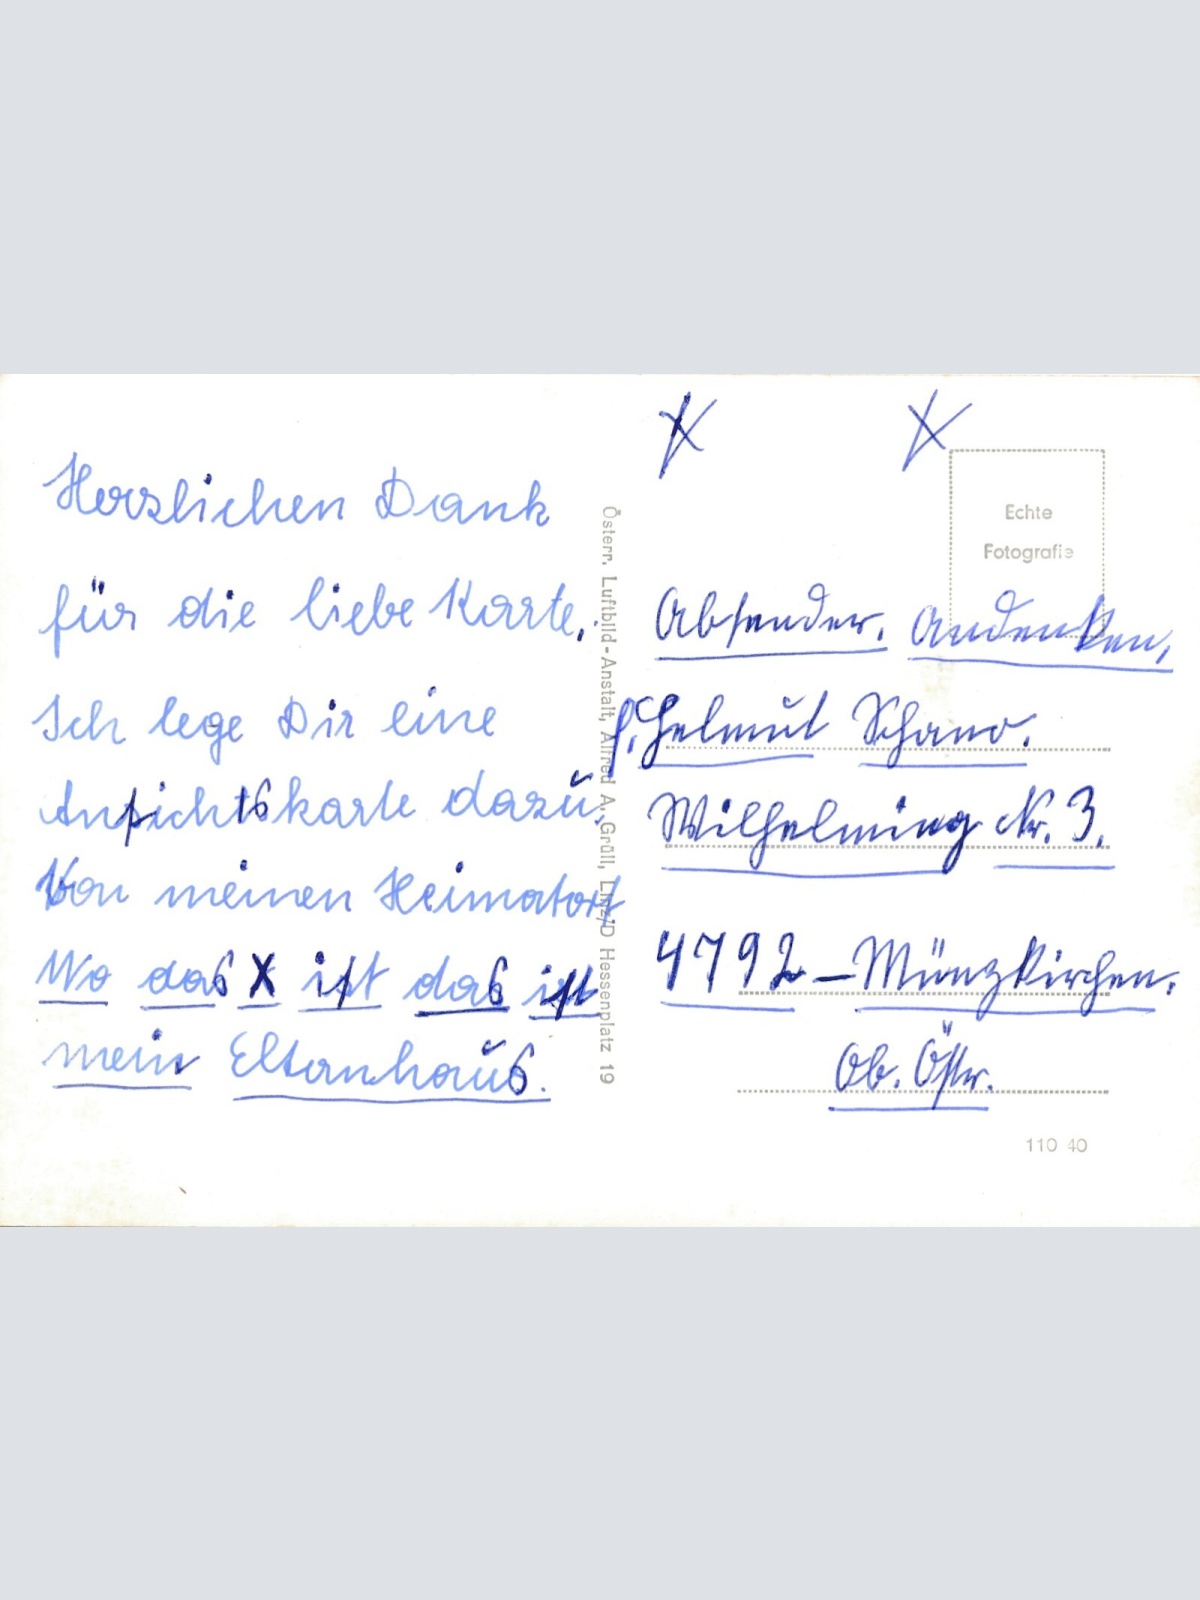 Herzlichen Dank
für die liebe Karte.
Ich lege Dir eine
Ansichtskarte dazu.
Von meinen Heimatort
Wo das X ist das ist
mein Elternhaus.
Österr. Luftbild-Anstalt, Alfred A. Grüll, Linz/D Hessenplatz 19
X X
Echte
Fotografie
Absender. Andenken,
Helmut
Wilhelming Nr. 3.
4792 – Münzkirchen.
Ob. Östr.
110 40